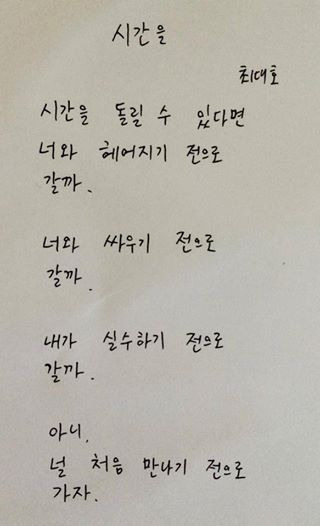 시간을
최대호
시간을 돌릴 수 있다면
너와 헤어지기 전으로
갈까.
너와 싸우기 전으로
갈까.
내가 실수하기 전으로
갈까.
아니,
널 처음 만나기 전으로
가자.